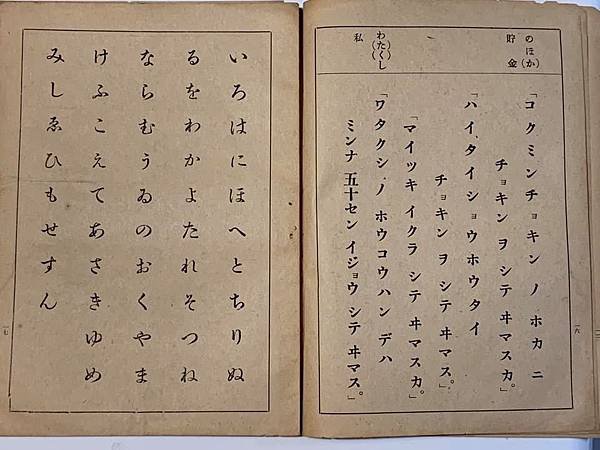 のほ(か)
貯金
わ(た)(く)し
私
「コクミンチョキン ノ ホカ ニ
チョキン ヲ シテ ヰマスカ。」
「ハイ、タイショウホウタイ
チョキン ヲ シテ ヰマス。」
「マイツキ イクラ シテ ヰマスカ。」
「ワタクシ ノ ホウコウハン デハ
ミンナ 五十セン イジョウ シテ ヰマス。」
一六
いろはにほへとちりぬ
るをわかよたれそつね
ならむうゐのおくやま
けふこえてあさきゆめ
みしゑひもせすん
一七